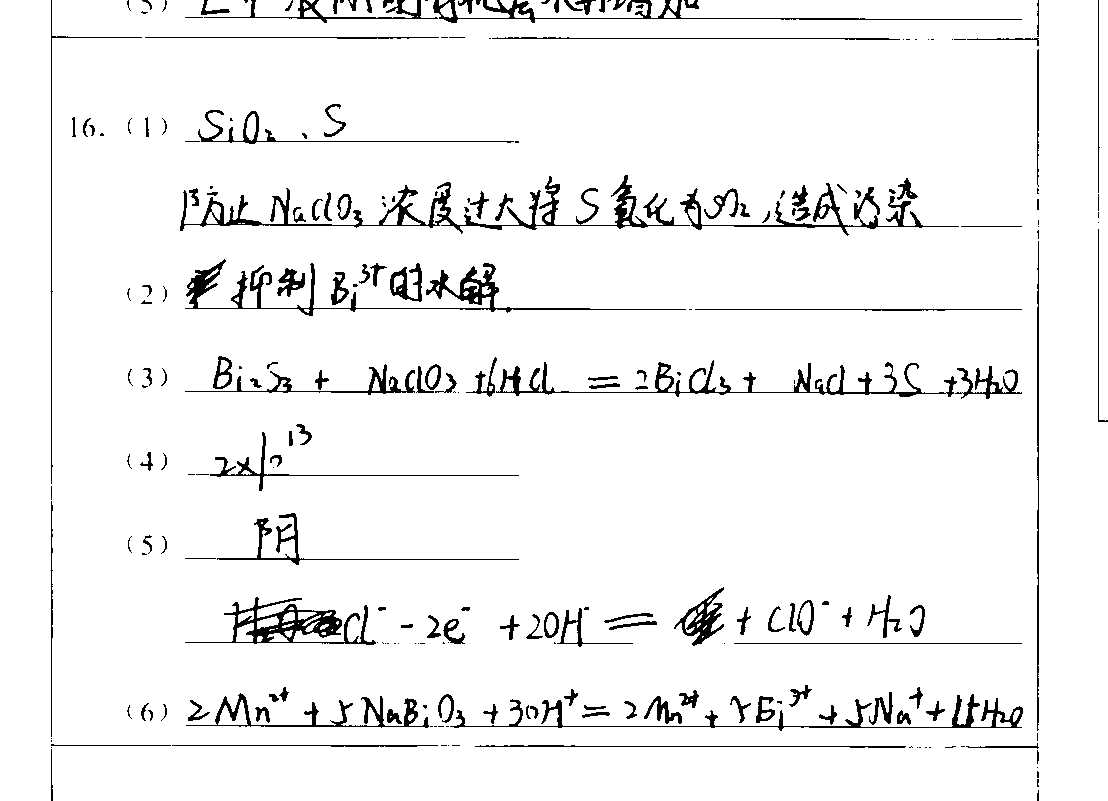 16. (1) SiO₂、S
防止NaClO₃浓度过大将S氧化为SO₂,造成污染
(2) 抑制Bi³⁺的水解.
(3) Bi₂S₃ + NaClO₃ +6HCl = 2BiCl₃ + NaCl + 3S +3H₂O
(4) 2×10¹³
(5) 阴
Cl⁻ - 2e⁻ + 2OH⁻ = + ClO⁻ + H₂O
(6) 2Mn²⁺ + 5NaBiO₃ + 30H⁺ = 2Mn²⁺ + 5Bi³⁺ + 5Na⁺ + 15H₂O